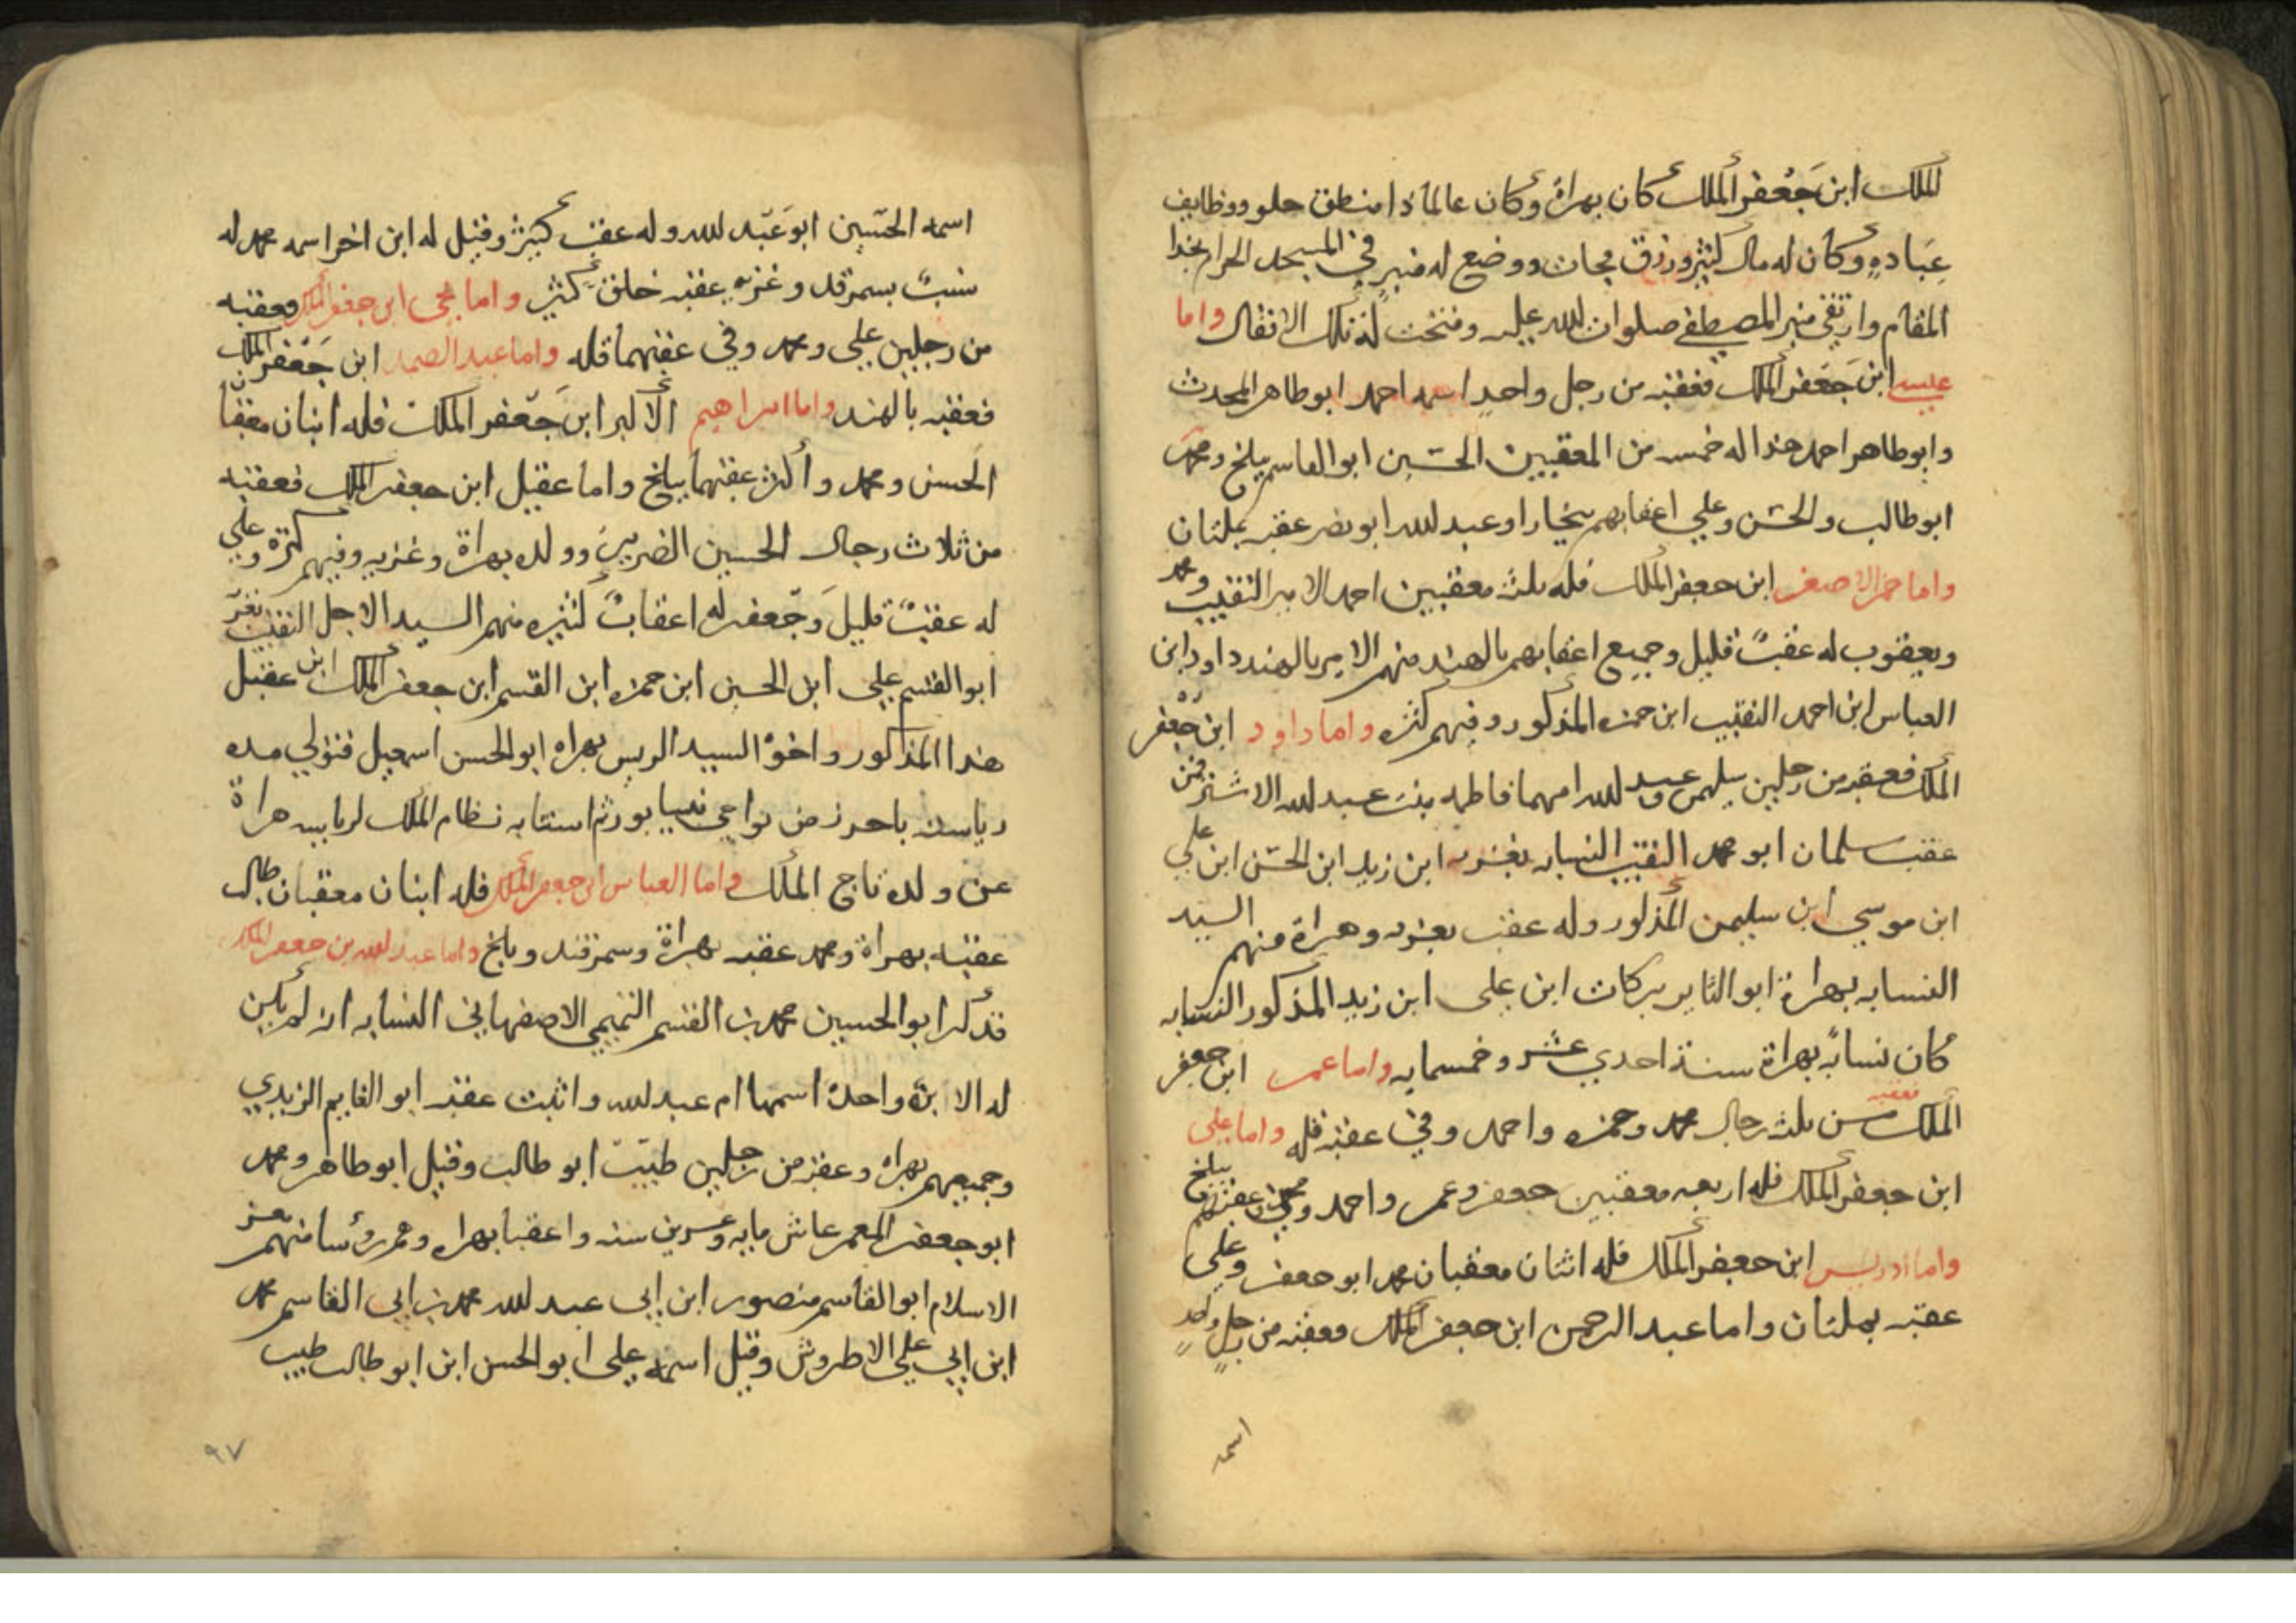 الملك ابن جَعْفر الملك كان بهراة وكان عالماً ذا منطق حلو ووظايف
عِبَادةٍ وكان له مال كثير ورزق مجات ووضع له منبر في المسجد الحرام بحذا
المقام وارتقى منبر المصطفى صلوات الله عليه وفتحت له تلك الاقفال واما
عيسى ابن جَعفر الملك فعقبه من رجل واحدٍ اسمه احمد ابو طاهر المحدث
وابو طاهر احمد هذا له خمسه من المعقبين الحسَين ابو القاسم ببلخ ومحمد
ابو طالب والحسَن وعلي اعقابهم ببخارا وعبد الله ابو نصر عقبه بملتان
واما حمزة الاصغر ابن جعفر الملك فله ثلثه معقبين احمد الامير النقيب ومحمد
ويعقوب له عقبٌ قليل وجميع اعقابهم بالهند منهم الامير بالهند داود ابن
العباس ابن احمد النقيب ابن حمزه المذكور وفيهم كثره واما داود ابن جَعْفر
الملك فعقبه من رجلين سليمن وعبد الله امهما فاطمه بنت عبد الله الاشتر فمن
عقب سلمان ابو محمد النقيب النسابه بغزنه ابن زيد ابن الحسَن ابن علي
ابن موسي ابن سليمن المذكور وله عقب بغزنه وهراة منهم السيد
النسابه بهراة ابو الثاير بركات ابن علي ابن زيد المذكور النسابه
كان نسابةً بهراة سنة احدي عشر وخمسمايه واما عمر ابن جعفر
الملك فعقبه من ثلثه رجال محمد وحمزه واحمد وفي عقبه قله واما علي
ابن جعفر الملك فله اربعه معقبين جعفر وعمر واحمد ومحمد وعقبهم ببلخ
واما ادريس ابن جعفر الملك فله اثنان معقبان محمد ابو جعفر وعلي
عقبه بملتان واما عبد الرحمن ابن جعفر الملك فعقبه من رجل واحد
اسمه
اسمه الحسَين ابو عَبد الله وله عقب كبيرٌ وقيل له ابن اخر اسمه محمد له
بسمرقند وغزنه عقبه خلق كثير واما يحيى ابن جعفر الملك فعقبه
من رجلين علي ومحمد وفي عقبهما قله واما عبد الصمد ابن جَعْفر الملك
فعقبه بالهند واما ابراهيم الاكبر ابن جَعْفر الملك فله ابنان معقبان
الحسن ومحمد واكثر عقبهما ببلخ واما عقيل ابن جعفر الملك فعقبه
من ثلاث رجال الحسين الضرير وولده بهراة وغزنه وفيهم كثره وعلي
له عقبٌ قليل وجعفر له اعقابٌ كثيره منهم السيد الاجل النقيب بغزنة
ابو القسم علي ابن الحسين ابن حمزه ابن القسم ابن جعفر الملك ابن عقيل
هذا المذكور واخوْ السيد الريس بهراه ابو الحسن اسمعيل فتولي مده
رياسة باخرز من نواحي نيسابور ثم استنابه نظام الملك لرياسه هراة
عن ولده تاج الملك واما العباس ابن جعفر الملك فله ابنان معقبان طالب
عقبه بهراة ومحمد عقبه بهراة وسمرقند وبلخ واما عبد الله بن جعفر الملك
فذكر ابو الحسين محمد بن القسم التميمي الاصفهاني النسابه انه لم يكن
له الا بنة واحدة اسمها ام عبد الله واثبت عقبه ابو الغايم الزيدي
وجميعهم بهراه وعقبه من رجلين طيبّ ابو طالب وقيل ابو طاهر ومحمد
ابو جعفر المعمر عاش مايه وعشرين سنه واعقبا بهراه وهم رؤسا منهم معز
الاسلام ابو القاسم منصور ابن ابي عبد الله محمد بن ابي القاسم محمد
ابن ابي علي الاطروش وقيل اسمه علي ابو الحسن ابن ابو طالب طيب
٩٧